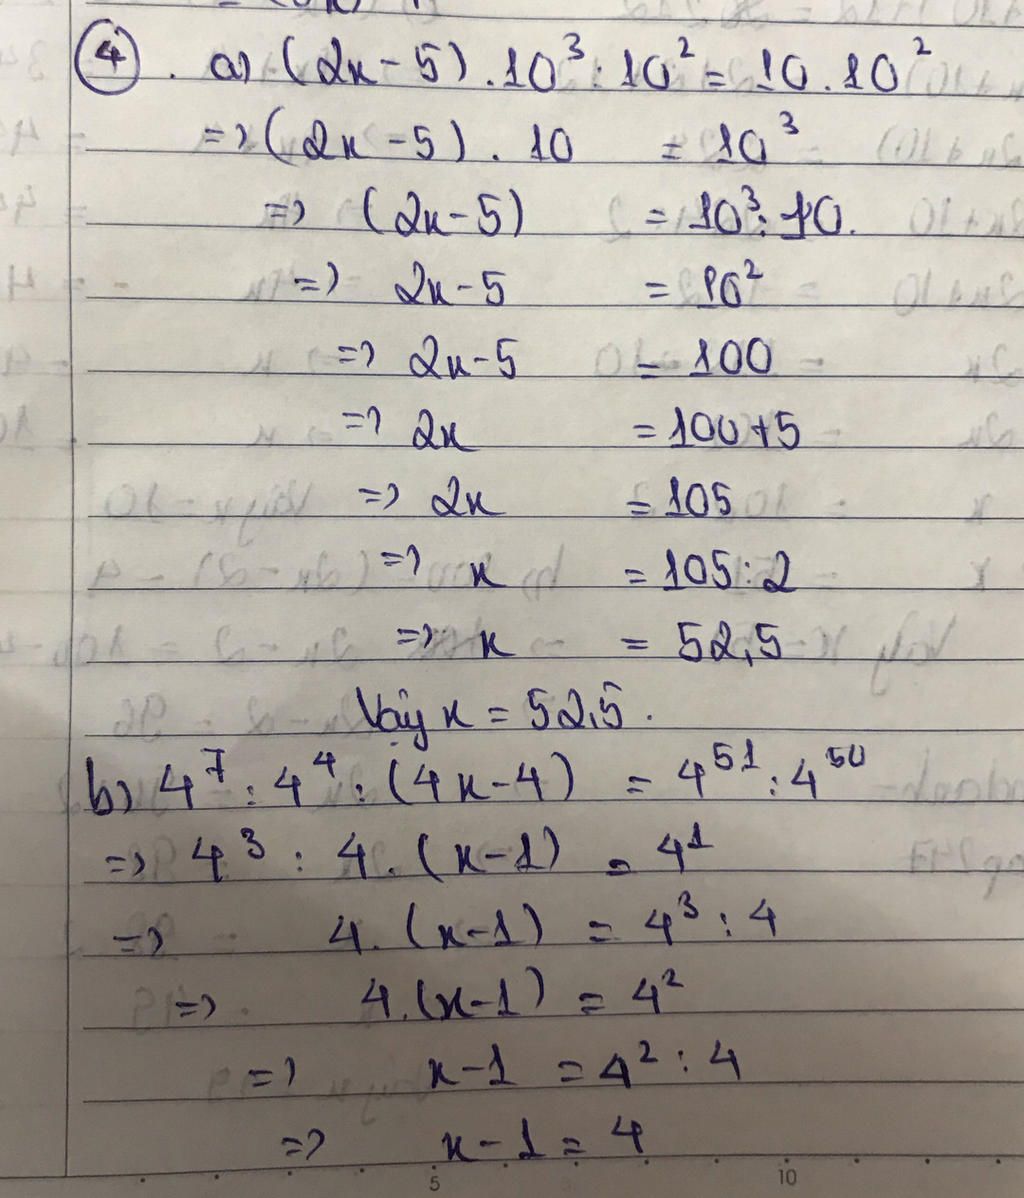 4. a) (2x - 5) . 10³ : 10² = 10 . 10²
=> (2x - 5) . 10 = 10³
=> (2x - 5) = 10³ : 10.
=> 2x - 5 = 10²
=> 2x - 5 = 100
=> 2x = 100 + 5
=> 2x = 105
=> x = 105 : 2
=> x = 52,5
Vậy x = 52,5.
b) 4⁷ : 4⁴ : (4x - 4) = 4⁵¹ : 4⁵⁰
=> 4³ : 4. (x - 1) = 4¹
=> 4. (x - 1) = 4³ : 4
=> 4. (x - 1) = 4²
=> x - 1 = 4² : 4
=> x - 1 = 4
5 10